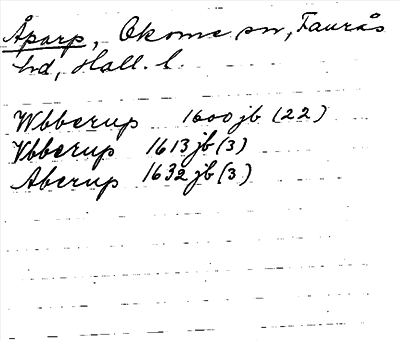 Åparp, Okome sn, Faurås
hd, Hall. l.
Wbberup 1600 jb (22)
Vbberup 1613 jb (3)
Aberup 1632 jb (3)